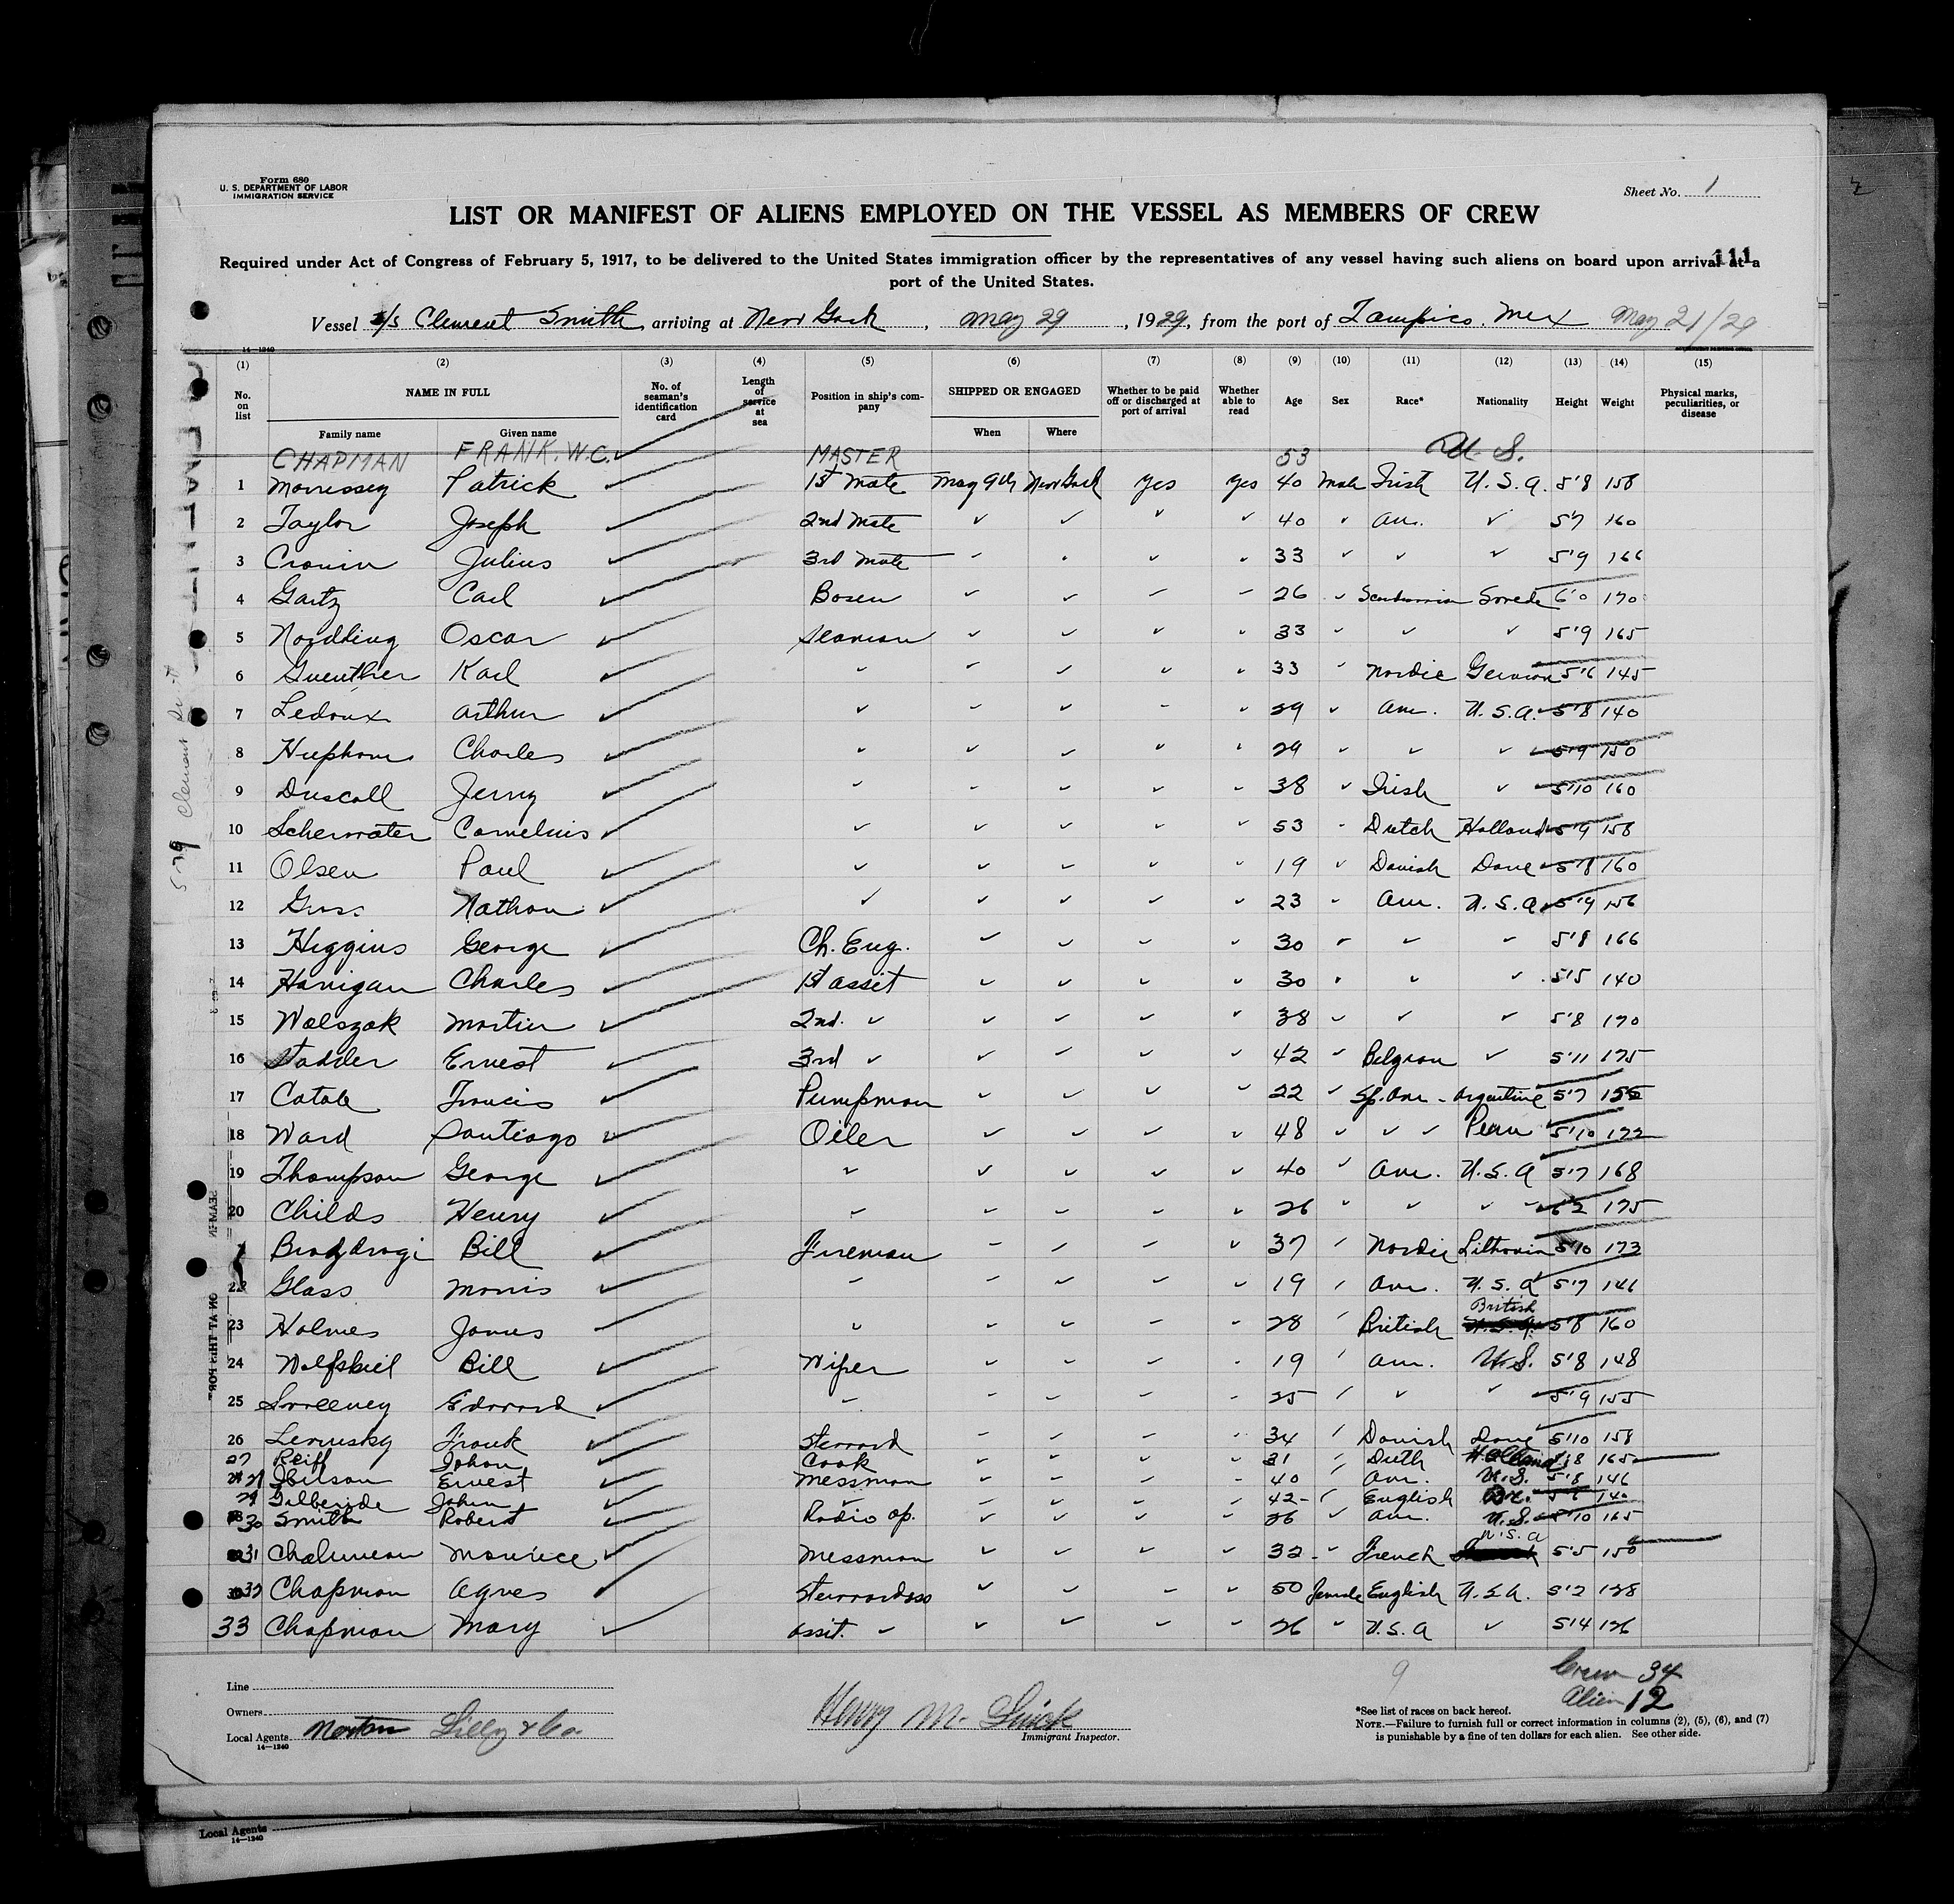 Form 680
U. S. DEPARTMENT OF LABOR
IMMIGRATION SERVICE
Sheet No. 1
LIST OR MANIFEST OF ALIENS EMPLOYED ON THE VESSEL AS MEMBERS OF CREW
111
Required under Act of Congress of February 5, 1917, to be delivered to the United States immigration officer by the representatives of any vessel having such aliens on board upon arrival at a
port of the United States.
Vessel s/s Clement Smith, arriving at New York, May 29, 1929, from the port of Tampico. Mex May 21/29
14—1240
(1) (2) (3) (4) (5) (6) (7) (8) (9) (10) (11) (12) (13) (14) (15)
No. on list NAME IN FULL No. of seaman's identification card Length of service at sea Position in ship's company SHIPPED OR ENGAGED Whether to be paid off or discharged at port of arrival Whether able to read Age Sex Race* Nationality Height Weight Physical marks, peculiarities, or disease
Family name Given name When Where
CHAPMAN FRANK. W.C. MASTER 53 U. S.
1 Morrissey Patrick ✓ 1st Mate May 9th New York Yes Yes 40 Male Irish U. S. A. 5'8 158
2 Taylor Joseph ✓ 2nd Mate ✓ ✓ ✓ ✓ 40 ✓ Am. ✓ 5'7 160
3 Cronin Julius ✓ 3rd Mate ✓ ✓ ✓ ✓ 33 ✓ ✓ ✓ 5'9 166
4 Gartz Carl ✓ Bosen ✓ ✓ ✓ ✓ 26 ✓ Swede 6'0 170
5 Nordling Oscar ✓ Seaman ✓ ✓ ✓ ✓ 33 ✓ ✓ ✓ 5'9 165
6 Guenther Karl ✓ ✓ ✓ ✓ ✓ ✓ 33 ✓ Nordic German 5'6 145
7 Ledoux Arthur ✓ ✓ ✓ ✓ ✓ ✓ 29 ✓ Am. U. S. A. 5'8 140
8 Charles ✓ ✓ ✓ ✓ ✓ ✓ 29 ✓ ✓ ✓ 5'9 150
9 Driscoll Jerry ✓ ✓ ✓ ✓ ✓ ✓ 38 ✓ Irish ✓ 5'10 160
10 Scherwater Cornelius ✓ ✓ ✓ ✓ ✓ ✓ 53 ✓ Dutch Holland 5'9 158
11 Olsen Paul ✓ ✓ ✓ ✓ ✓ ✓ 19 ✓ Danish Dane 5'8 160
12 Nathan ✓ ✓ ✓ ✓ ✓ ✓ 23 ✓ Am. U. S. A. 5'9 156
13 Higgins George ✓ Ch. Eng. ✓ ✓ ✓ ✓ 30 ✓ ✓ ✓ 5'8 166
14 Hanigan Charles ✓ 1st asst ✓ ✓ ✓ ✓ 30 ✓ ✓ ✓ 5'5 140
15 Walszak Martin ✓ 2nd. ✓ ✓ ✓ ✓ ✓ 38 ✓ ✓ ✓ 5'8 170
16 Stadder Ernest ✓ 3rd ✓ ✓ ✓ ✓ ✓ 42 ✓ Belgian ✓ 5'11 175
17 Catala Francis ✓ Pumpman ✓ ✓ ✓ ✓ 22 ✓ Sp. Am. Argentine 5'7 155
18 Ward Santiago ✓ Oiler ✓ ✓ ✓ ✓ 48 ✓ ✓ ✓ Peru 5'10 172
19 Thompson George ✓ ✓ ✓ ✓ ✓ ✓ 40 ✓ Am. U. S. A 5'7 168
20 Childs Henry ✓ ✓ ✓ ✓ ✓ ✓ 26 ✓ ✓ ✓ 6'2 175
Bill ✓ Fireman ✓ ✓ ✓ ✓ 37 ✓ Nordic Lithuania 5'10 173
22 Glass Morris ✓ ✓ ✓ ✓ ✓ ✓ 19 ✓ Am. U. S. A 5'7 146
23 Holmes James ✓ ✓ ✓ ✓ ✓ 28 ✓ British British 5'8 160
24 Wolfskiel Bill ✓ Wiper ✓ ✓ ✓ ✓ 19 ✓ Am. U. S. 5'8 148
25 Sweeney Edward ✓ ✓ ✓ ✓ ✓ ✓ 25 ✓ ✓ ✓ 5'9 155
26 Lewinsky Frank ✓ Steward ✓ ✓ ✓ ✓ 34 ✓ Danish Dane 5'10 158
27 Reiff Johan Cook ✓ ✓ ✓ ✓ 31 ✓ Duth Holland 5'8 165
Ernest ✓ Messman ✓ ✓ ✓ ✓ 40 ✓ Am. U. S. 5'8 146
29 Gilberide John ✓ ✓ ✓ ✓ ✓ ✓ 42 ✓ English Br. 5'6 140
30 Smith Robert ✓ Radio op. ✓ ✓ ✓ ✓ 26 ✓ Am. U. S. 5'10 165
31 Chalumeau Maurice ✓ Messman ✓ ✓ ✓ ✓ 32 ✓ French U. S. A 5'5 150
32 Chapman Agnes ✓ Stewardess ✓ ✓ ✓ ✓ 50 female English U. S. A. 5'2 128
33 Chapman Mary ✓ Asst. ✓ ✓ ✓ ✓ ✓ 26 ✓ U. S. A ✓ 5'4 126
9
Crew 34
Alien 12
Line
Owners
Local Agents Norton Lilly & Co.
14—1240
Henry M.
Immigrant Inspector.
*See list of races on back hereof.
NOTE.—Failure to furnish full or correct information in columns (2), (5), (6), and (7)
is punishable by a fine of ten dollars for each alien. See other side.
Local Agents
14—1240